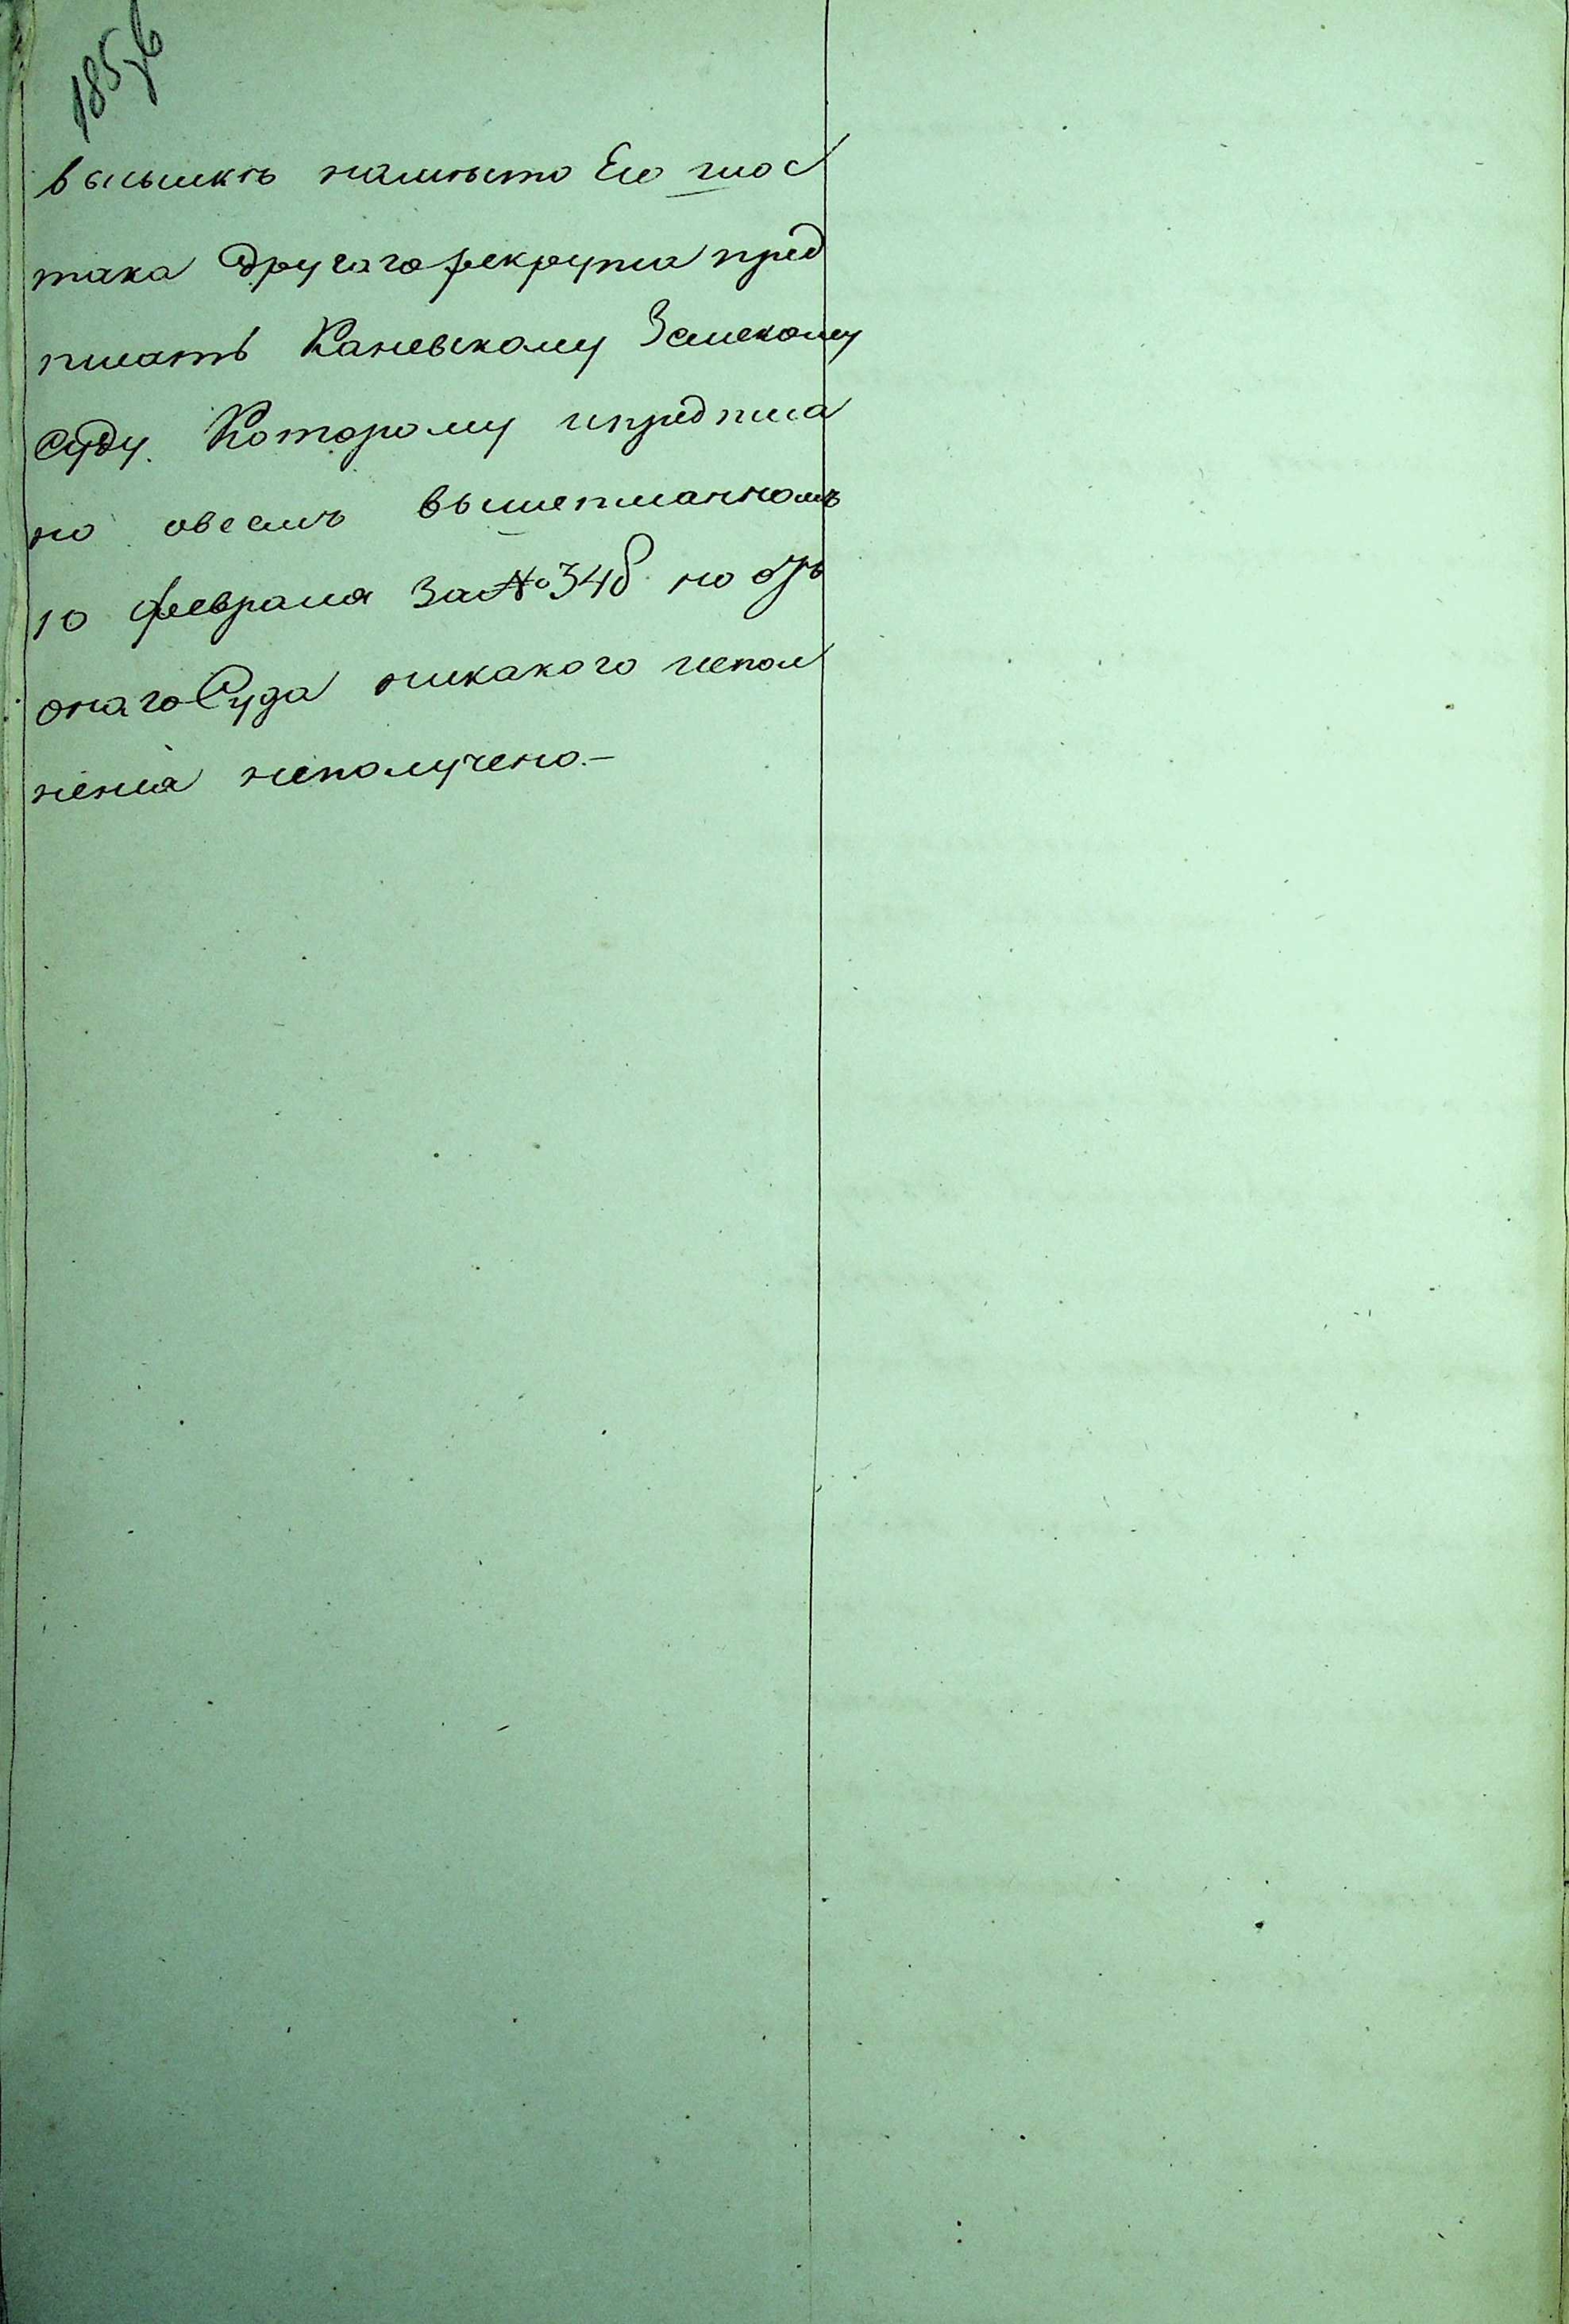 185 об
высылкѣ намѣсто Его Шос
така Другаго рекрута пред
писать Каневскому Земскому
Суду. Которому ипредписа
но овсемъ вышеписанномъ
10 февраля За№348 но отъ
онаго Суда никакого испол
ненія неполучено.—